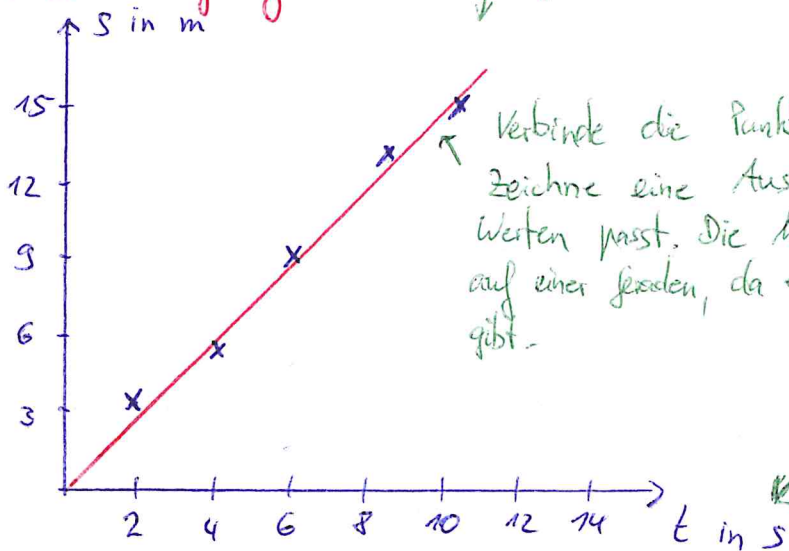 s in m
15
12
9
6
3
2 4 6 8 10 12 14
t in s
Verbinde die Punk
Zeichne eine Aus
Werten passt. Die
auf einer Geraden, da
gibt.